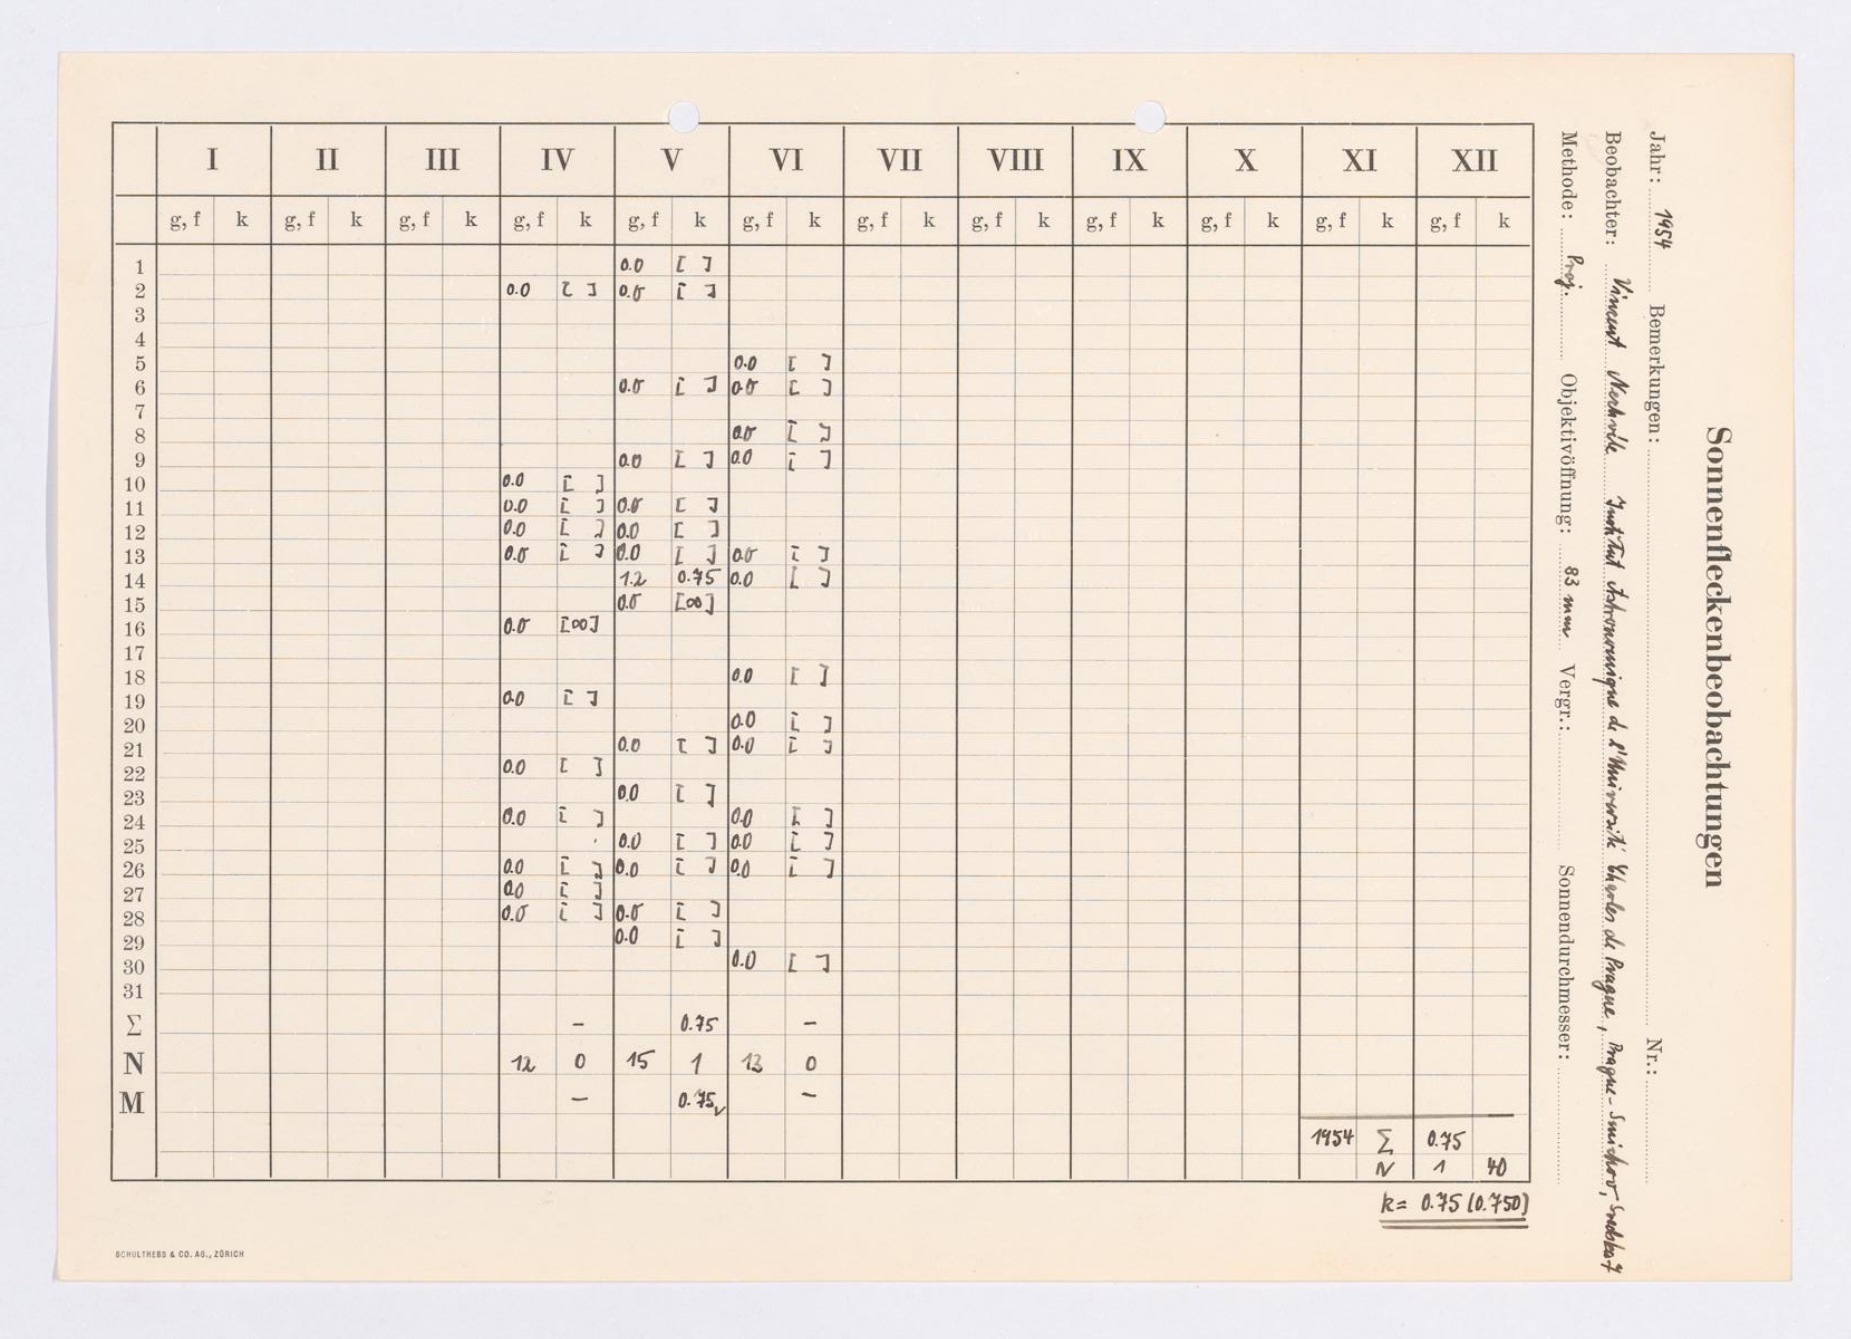 Sonnenfleckenbeobachtungen
Jahr: 1954 Bemerkungen: Nr.:
Beobachter: Vincent Institut Astronomique de l'Université Charles de Prague, Prague-Smichov,
Methode: Proj. Objektivöffnung: 83 mm Vergr.: Sonnendurchmesser:
I II III IV V VI VII VIII IX X XI XII
g, f k g, f k g, f k g, f k g, f k g, f k g, f k g, f k g, f k g, f k g, f k g, f k
1 0.0 [ ]
2 0.0 [ ] 0.0 [ ]
3
4
5 0.0 [ ]
6 0.0 [ ] 0.0 [ ]
7
8 0.0 [ ]
9 0.0 [ ] 0.0 [ ]
10 0.0 [ ]
11 0.0 [ ] 0.0 [ ]
12 0.0 [ ] 0.0 [ ]
13 0.0 [ ] 0.0 [ ] 0.0 [ ]
14 1.2 0.75 0.0 [ ]
15 0.0 [∞]
16 0.0 [∞]
17
18 0.0 [ ]
19 0.0 [ ]
20 0.0 [ ]
21 0.0 [ ] 0.0 [ ]
22 0.0 [ ]
23 0.0 [ ]
24 0.0 [ ] 0.0 [ ]
25 0.0 [ ] 0.0 [ ]
26 0.0 [ ] 0.0 [ ] 0.0 [ ]
27 0.0 [ ]
28 0.0 [ ] 0.0 [ ]
29 0.0 [ ]
30 0.0 [ ]
31
Σ – 0.75 –
N 12 0 15 1 13 0
M – 0.75 –
1954 Σ 0.75
N 1 40
k = 0.75 (0.750)
SCHULTHESS & CO. AG., ZÜRICH